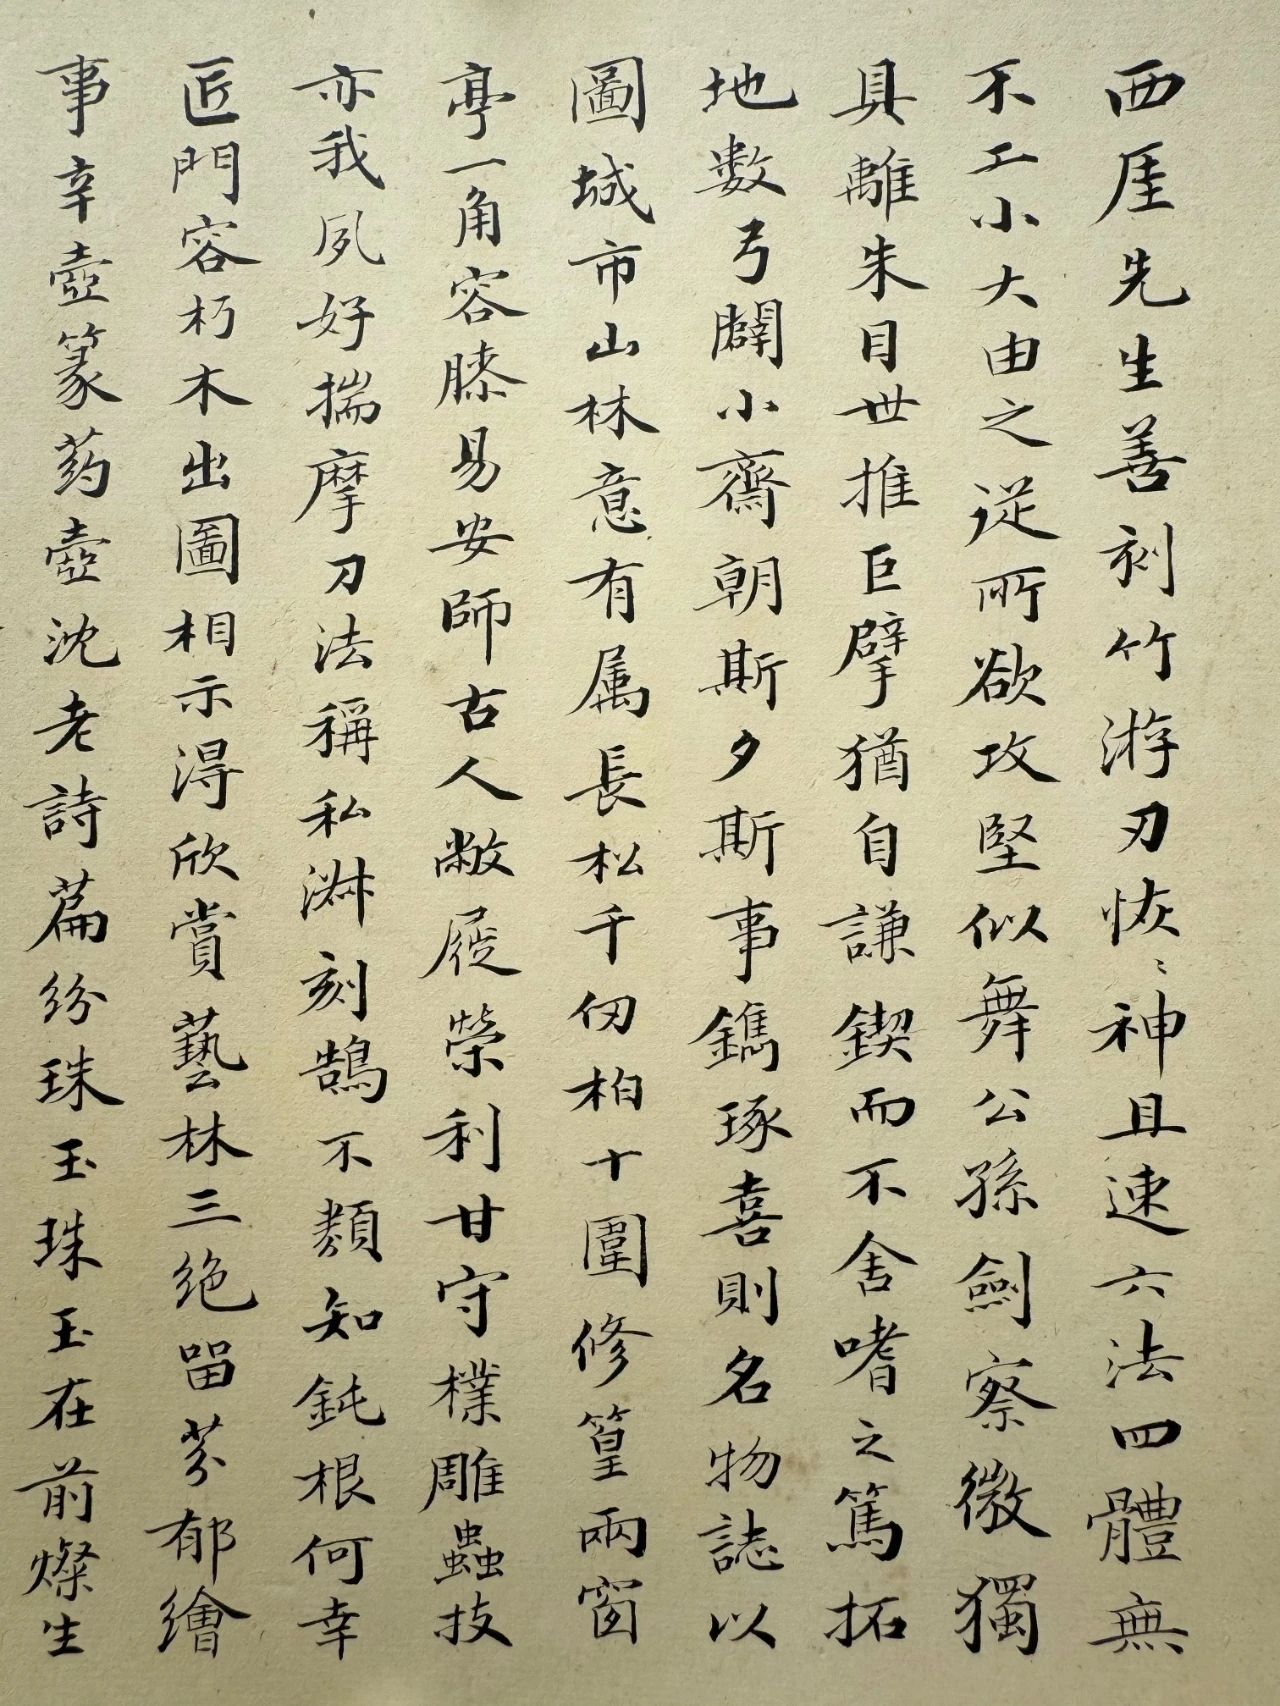 西厓先生善刻竹游刃恢〻神且速六法四體無
不工小大由之從所欲攻堅似舞公孫劍察微獨
具離朱目世推巨擘猶自謙鍥而不舍嗜之篤拓
地數弓闢小齋朝斯夕斯事鐫琢喜則名物誌以
圖城市山林意有属長松千仞柏十圍修篁兩窗
亭一角容膝易安師古人敝屣榮利甘守樸雕蟲技
亦我夙好揣摩刀法稱私淋刻鵠不類知鈍根何幸
匠門容朽木出圖相示得欣賞藝林三绝留芬郁繪
事辛壺篆葯壺沈老詩篇紛珠玉珠玉在前燦生